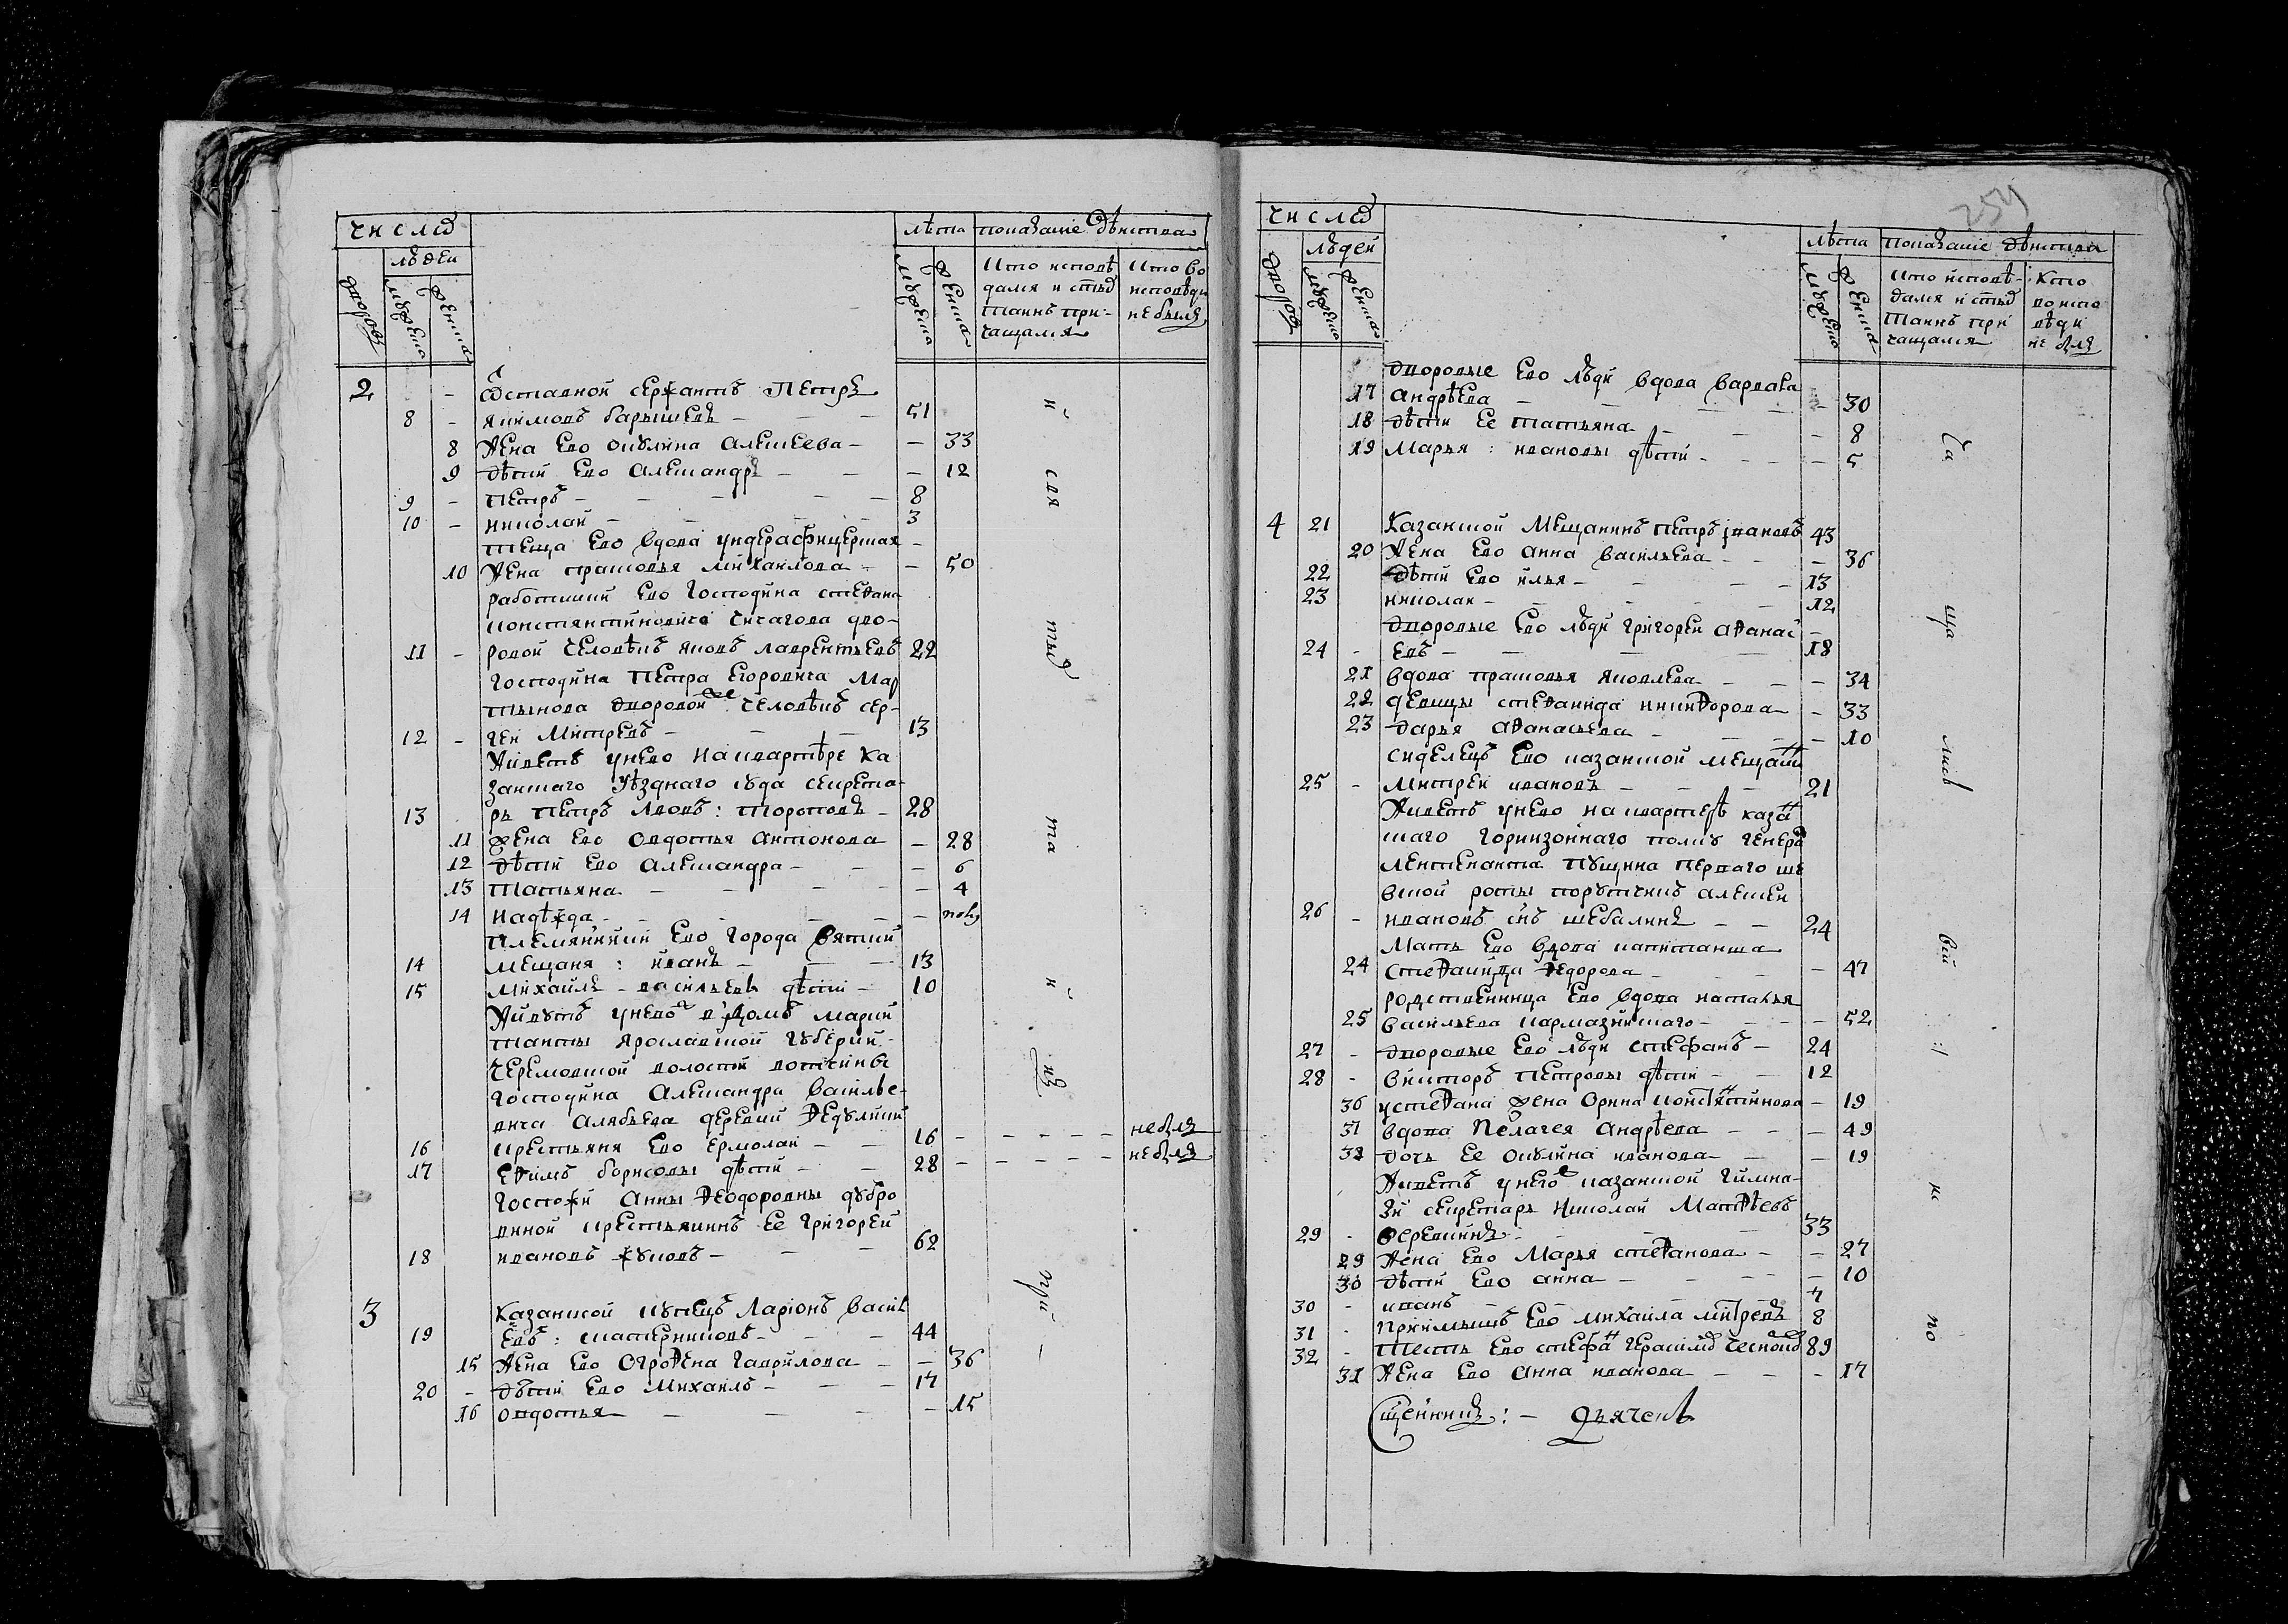 число
лѣта показаніе дѣиства
людеи
дворовъ
мужеска
женска
мужеска
женска
кто исповѣ
дался и стыхъ
таинъ при-
чащался
кто во
исповѣди
не былъ
2 - отставной сержантъ Петръ
8 - якимовъ барышевъ - 51
8 Жена Ево окулина алексеева - - 33
9 дѣти Ево Александръ - - - 12
9 - Петръ - - - - 8
10 - николаи - - - - 3
теща Ево вдова ундерафицерская -
10 Жена прасковья михаилова - - 50
работники Ево Господина степана
константиновича чисагова дво-
11 - ровой человѣкъ яковъ лаврентьевъ 22
Господина Петра Егоровича Мар
тынова дворовой человѣкъ сер-
12 - геи Митревъ - - 13
Живетъ унево на квартѣре Ка
занскаго Уѣзднаго суда секрета-
13 ръ Петръ Львовъ : тороповъ - 28
11 Жена Ево Овдотья антонова - 28
12 дѣти Ево Александра - - - 6
13 Татьяна - - - - - 4
14 надѣжда - - - - - полъ
племянники Ево города вятки
14 мещаня : иванъ - - 13
15 михаилъ - васильевы дѣти - 10
Живутъ унево в домѣ Марии
танты ярославской губернии -
черемовской волости вотчины
господина Александра василье-
вича алябьева деревни Федулкии
16 крестьяня Ево Ермолаи - - 16 - - - - - небылъ
17 Ефимъ борисовы дѣти - - 28 - - - - - небылъ
госпожи Анны Феодоровны дубро
виной крестьянинъ ее григореи
18 ивановъ жуковъ - - - 62
3 Казанской купецъ Ларіонъ васил
19 евъ : шатерниковъ - - - 44
15 Жена Ево Огрофена гаврилова - - 36
20 - дѣти Ево Михаилъ - - - 17
16 овдотья - - - - 15
и
сея
тых
та
и
нъ
при
-
254
число
лѣта показаніе дѣиства
людей
дворовъ
мужеска
женска
мужеска
женска
кто исповѣ-
дался и стыхъ
таинъ при
чащался
кто
во испо
вѣди
не былъ
дворовые Ево люди вдова варвара
17 андрѣева - - - - 30
18 дѣти Ее татьяна - - - 8
19 Марья : ивановы дѣти - - - 5
4 21 Казанской Мещанинъ Петръ івановъ 43
20 Жена Ево анна васильева - - - 36
22 дѣти Ево илья - - - - 13
23 николаи - - - - 12
дворовые Ево люди григореи афанас -
24 - евъ - - - 18
21 вдова прасковья яковлева - - - 34
22 девицы степанида никифорова - - 33
23 дарья афанасьева - - - - 10
сиделецъ Ево казанской мещанин
25 - митреи ивановъ - - - 21
Живетъ унево на квартерѣ казан
скаго горнизоннаго полку генерал
лентенанта пущина перваго ше
вской роты порутчикъ алексеи
26 - ивановъ снъ шебалинъ - - 24
Мать Ево вдова капитанша
24 степанида Федорова - - - 47
родственница Ево вдова наталья
25 васильева кармазинскаго - - - 52
27 - дворовые Ево люди стефанъ - 24
28 - викторъ петровы дѣти - - 12
36 устефана жена орина константинова - 19
37 вдова Пелагея андрѣева - - - 49
38 дочь ее окулина иванова - - 19
Живетъ унего казанской гимна-
зи секретаръ николаи Матфѣевъ
29 - веревкинъ - - - 33
29 Жена Ево Марья степанова - - 27
30 дѣти Ево анна - - - - 10
30 - иванъ - - - - 7
31 - приимышъ Ево михаила митревъ 8
32 - тесть Ево стефан герасимов чеснокв 89
31 Жена Ево Анна иванова - - - 17
Сщенникъ : - дьячекъ
ча
ща
лись
вси
:/
не
по